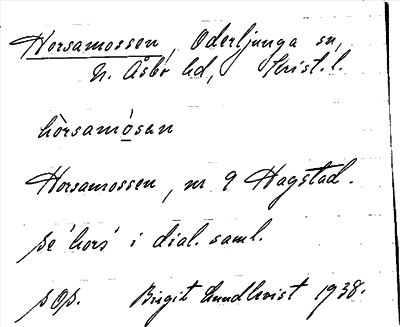 Horsamossen, Oderljunga sn,
N. Åsbo hd, Krist. l.
hòrsamósan
Horsamossen, nr 9 Hagstad.
se 'hors' i dial. saml.
Birgit Lundkvist 1938.